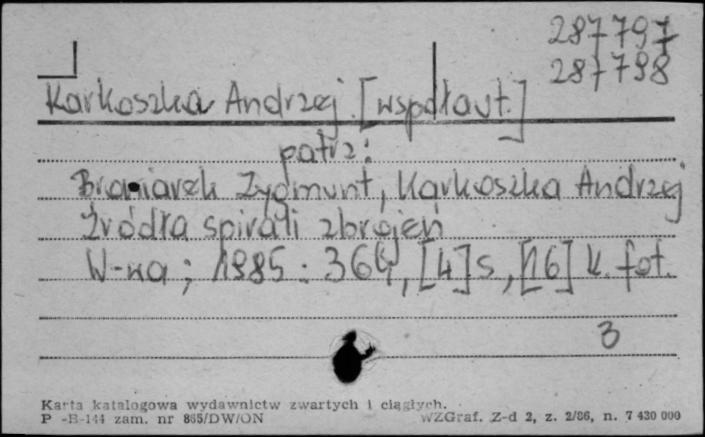 287797
287798
Karkoszka Andrzej [współaut.]
patrz:
Broniarek Zygmunt, Karkoszka Andrzej
Źródła spirali zbrojeń
W-wa; 1985: 364, [4] s, [16] k. fot.
3
Karta katalogowa wydawnictw zwartych i ciągłych.
P -B-144 zam. nr 865/DW/ON WZGraf. Z-d 2, z. 2/86, n. 7 430 000